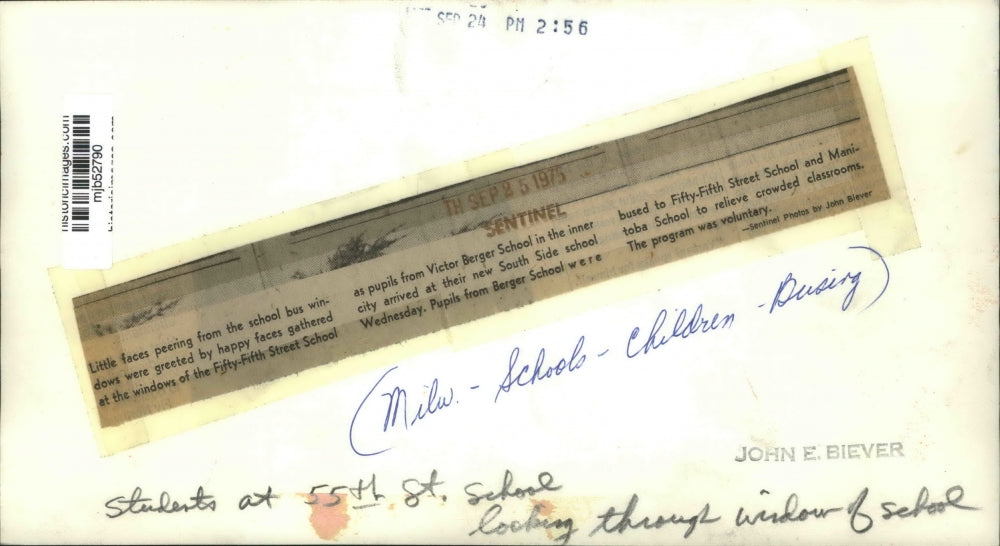 SEP 24 PM 2:56
historicimages.com
mjb52790
TH SEP 25 1975
SENTINEL
Little faces peering from the school bus win-
dows were greeted by happy faces gathered
at the windows of the Fifty-Fifth Street School
as pupils from Victor Berger School in the inner
city arrived at their new South Side school
Wednesday. Pupils from Berger School were
bused to Fifty-Fifth Street School and Mani-
toba School to relieve crowded classrooms.
The program was voluntary.
—Sentinel Photos by John Biever
(Milw. - Schools - Children - Busing)
JOHN E. BIEVER
Students at 55th St. School
looking through window of school